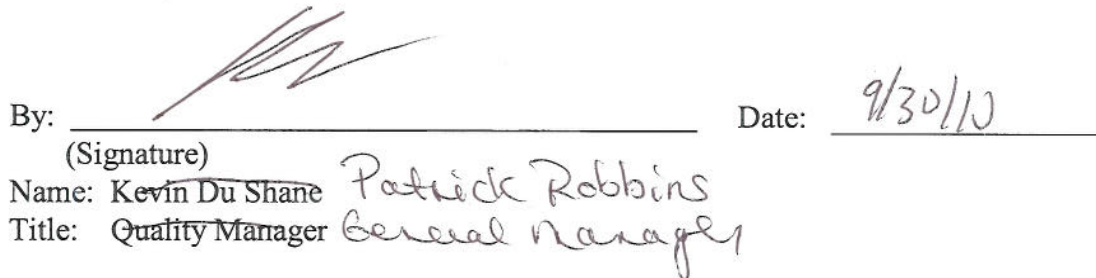 By: Date: 9/30/10
(Signature)
Name: Kevin Du Shane Patrick Robbins
Title: Quality Manager General Manager